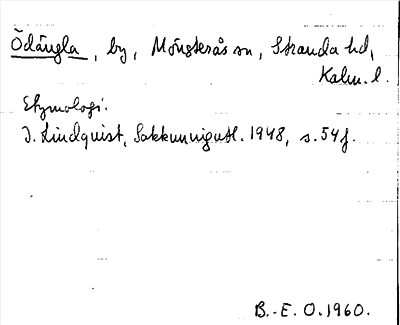 Ödängla, by, Mönsterås sn, Stranda hd,
Kalm. l.
Etymologi.
I. Lindquist, Sakkunnigutl. 1948, s. 54 f.
B.-E. O. 1960.